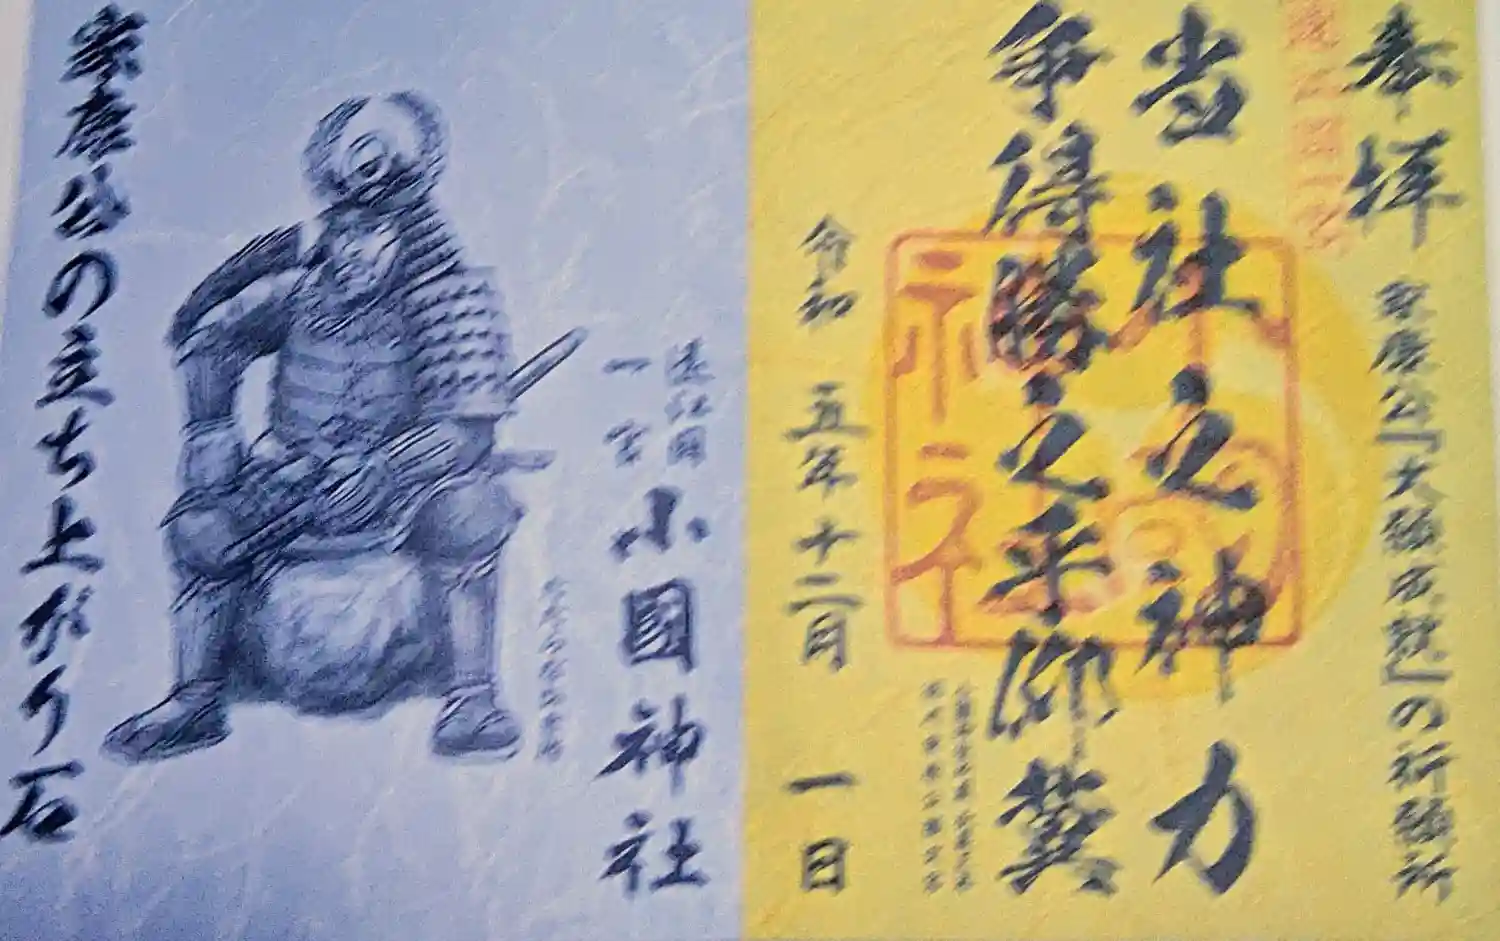 奉拝
家康公『大願成就』の祈願所
遠江國一宮
当社之神力
争得勝之乎仰冀
令和 五年 十二月 一日
遠江國
一宮
小國神社
家康公の立ち上がり石